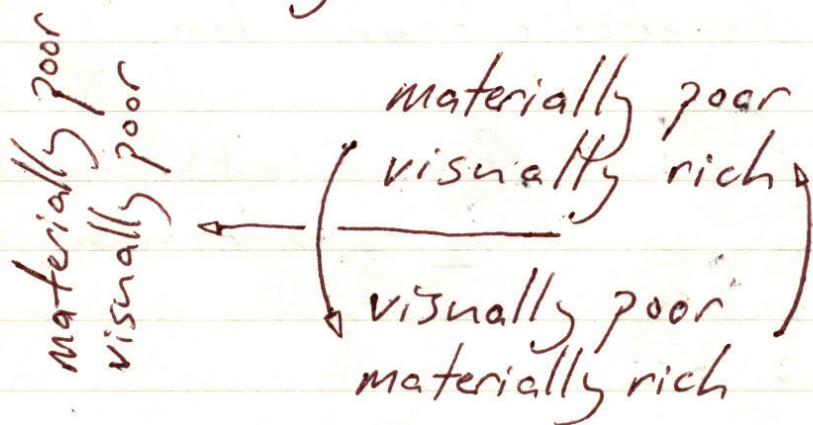 materially poor
visually poor
materially poor
visually rich
visually poor
materially rich